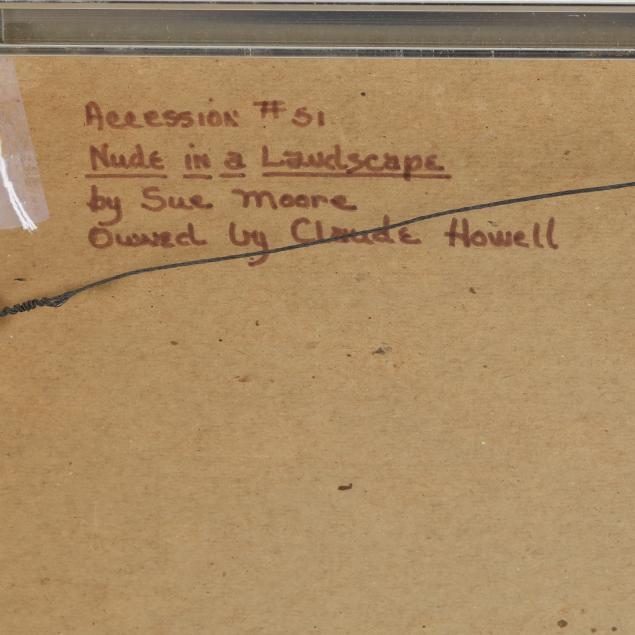 Accession #51
Nude in a Landscape
by Sue Moore
Owned by Claude Howell